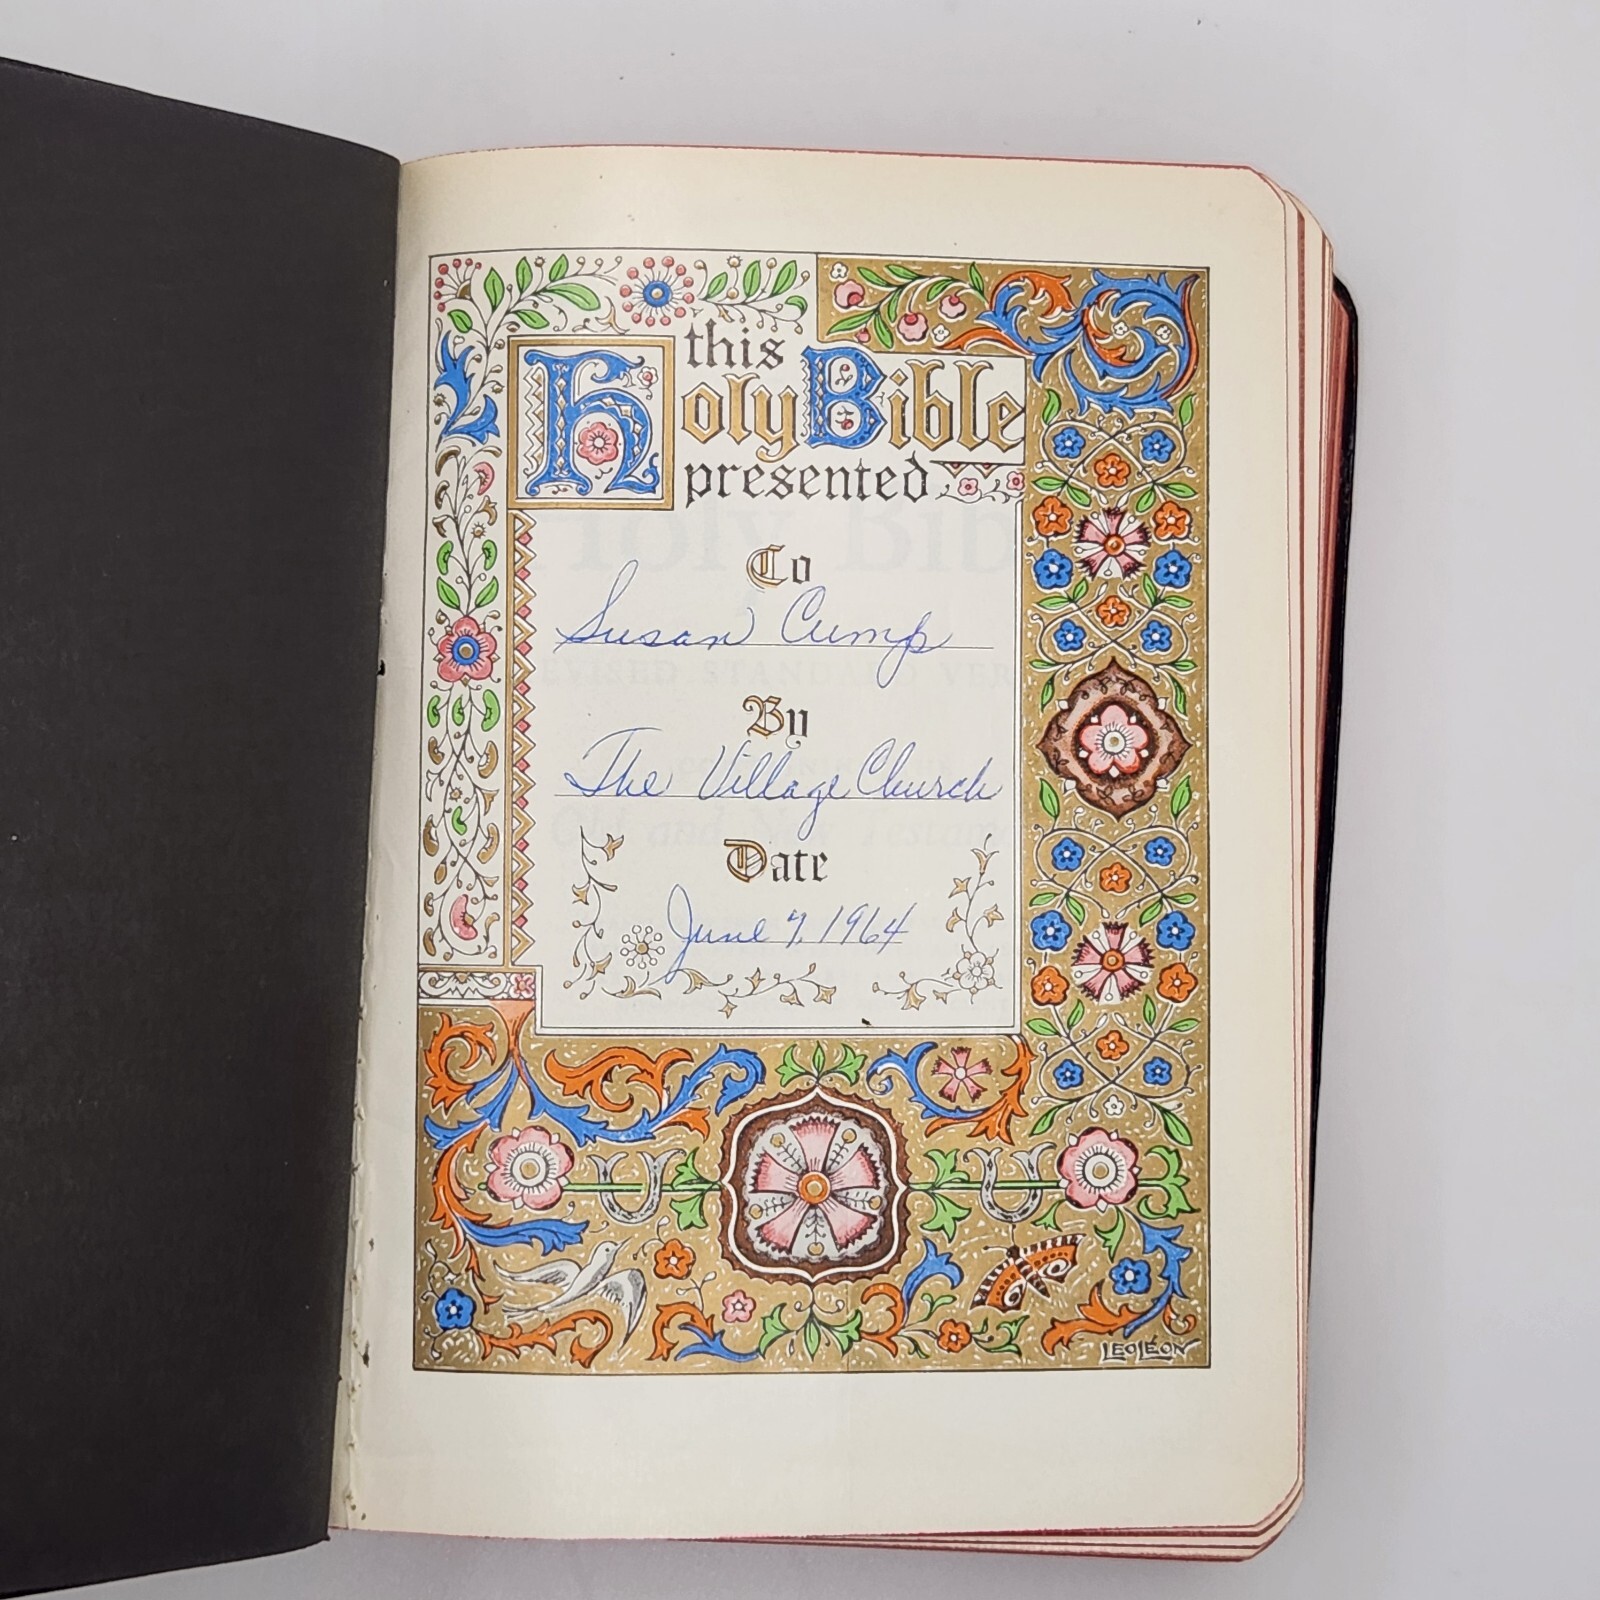 this
Holy Bible
presented
To
Susan Cump
By
The Village Church
Date
June 7, 1964
LEOLÉON